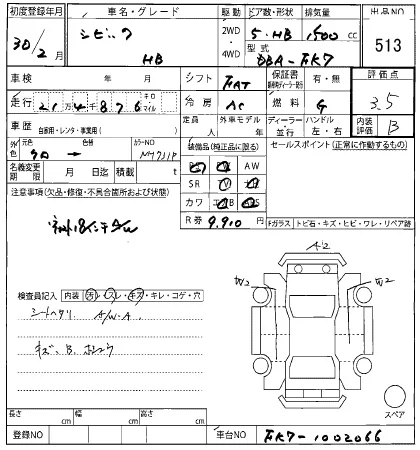 初度登録年月 車名・グレード 駆動 ドア数・形状 排気量 出品NO
30/2月 シビック HB 2WD・4WD 5・HB 1500cc 513
型式 DBA-FK7
車検 年 月 シフト FAT 保証書 有・無 評価点
走行 21,4876 キロ マイル 冷房 AC 燃料 G 3.5
車歴 自家用・レンタ・事業用( ) 定員 人 外車モデル 年 ディーラー・並行 ハンドル 左・右 内装評価 B
外色 元色 クロ → 色替 カラーNO NH731P 装備品(純正品に限る) セールスポイント(正常に作動するもの)
名義変更期限 月 日迄 積載 t AW
注意事項(欠品・修復・不具合箇所および状態) SR TV
カワ
R券 9,910 Fガラス トビ石・キズ・ヒビ・ワレ・リペア跡
A2
W2 W2
検査員記入 内装 汚・スレ・キズ・キレ・コゲ・穴
シートヘタリ A/W・A
キズ、B、ホシュウ
スペア
長さ cm 幅 cm 高さ cm
登録NO 車台NO FK7-1002066